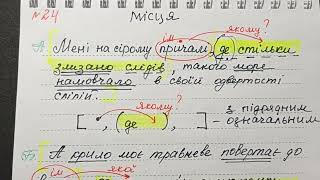 №24 місця
якому?
ім.
А. Мені на сірому причалі, де стільки
злизано слідів, такого море
намовчало в своїй одвертості
сліпій.
якому?
[ , (де ), ] з підрядним
означальним
Б. А крило моє травневе повертає до
ім. яка?